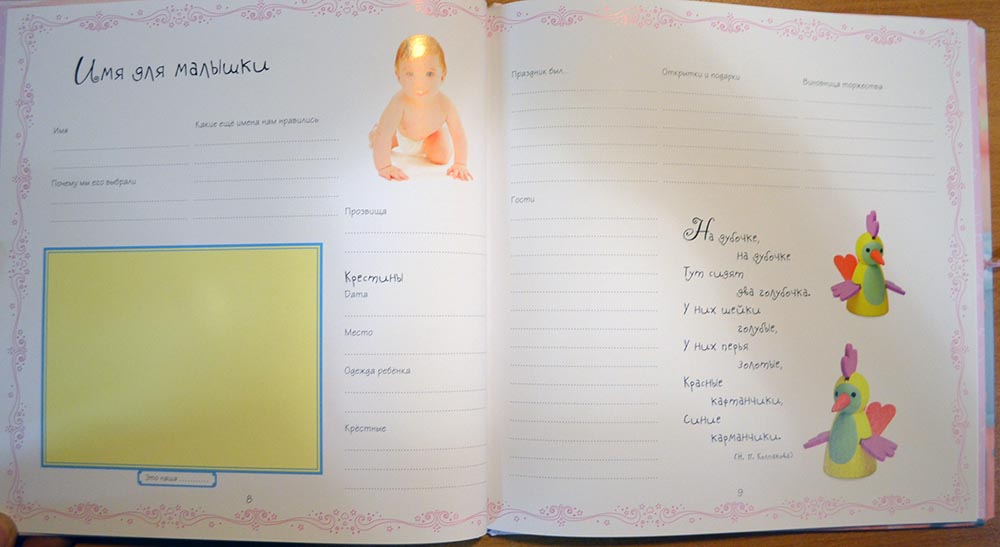 Имя для малышки
Имя
Какие ещё имена нам нравились
Почему мы его выбрали
Прозвища
Крестины
Дата
Место
Одежда ребёнка
Крёстные
Это наша
8
Праздник был...
Открытки и подарки
Виновница торжества
Гости
На дубочке,
на дубочке
Тут сидят
два голубочка.
У них шейки
голубые,
У них перья
золотые,
Красные
кафтанчики,
Синие
карманчики.
(Н. П. Колпакова)
9